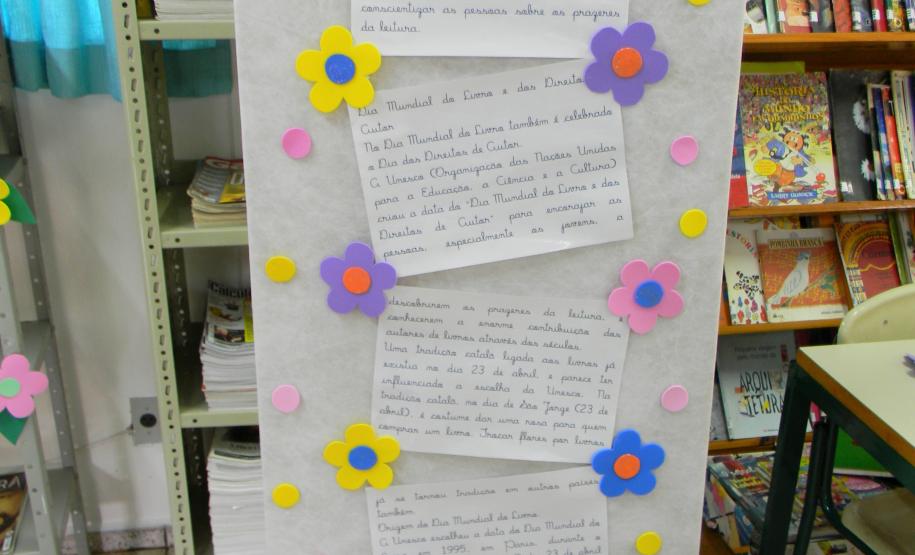 conscientizar as pessoas sobre os prazeres
da leitura.
Dia Mundial do Livro e dos Direitos
Autor
No Dia Mundial do Livro também é celebrado
o Dia dos Direitos de Autor.
A Unesco (Organização das Nações Unidas
para a Educação, a Ciência e a Cultura)
criou a data do "Dia Mundial do Livro e dos
Direitos de Autor" para encorajar as
pessoas, especialmente os jovens, a
descobrirem os prazeres da leitura,
conhecerem a enorme contribuição dos
autores de livros através dos séculos.
Uma tradição catalã ligada aos livros já
existia no dia 23 de abril e parece ter
influenciado a escolha da Unesco. Na
tradição catalã, no dia de São Jorge (23 de
abril), é costume dar uma rosa para quem
comprar um livro. Trocar flores por livros
já se tornou tradição em outros países
também.
Origem do Dia Mundial do Livro
A Unesco escolheu a data do Dia Mundial do
em 1995, em Paris, durante o
23 de abril
HISTÓRIA
DO
MUNDO
EM QUADRINHOS
LARRY GONICK
POMBINHA BRANCA
ARQUI
TETURA
Cálculo